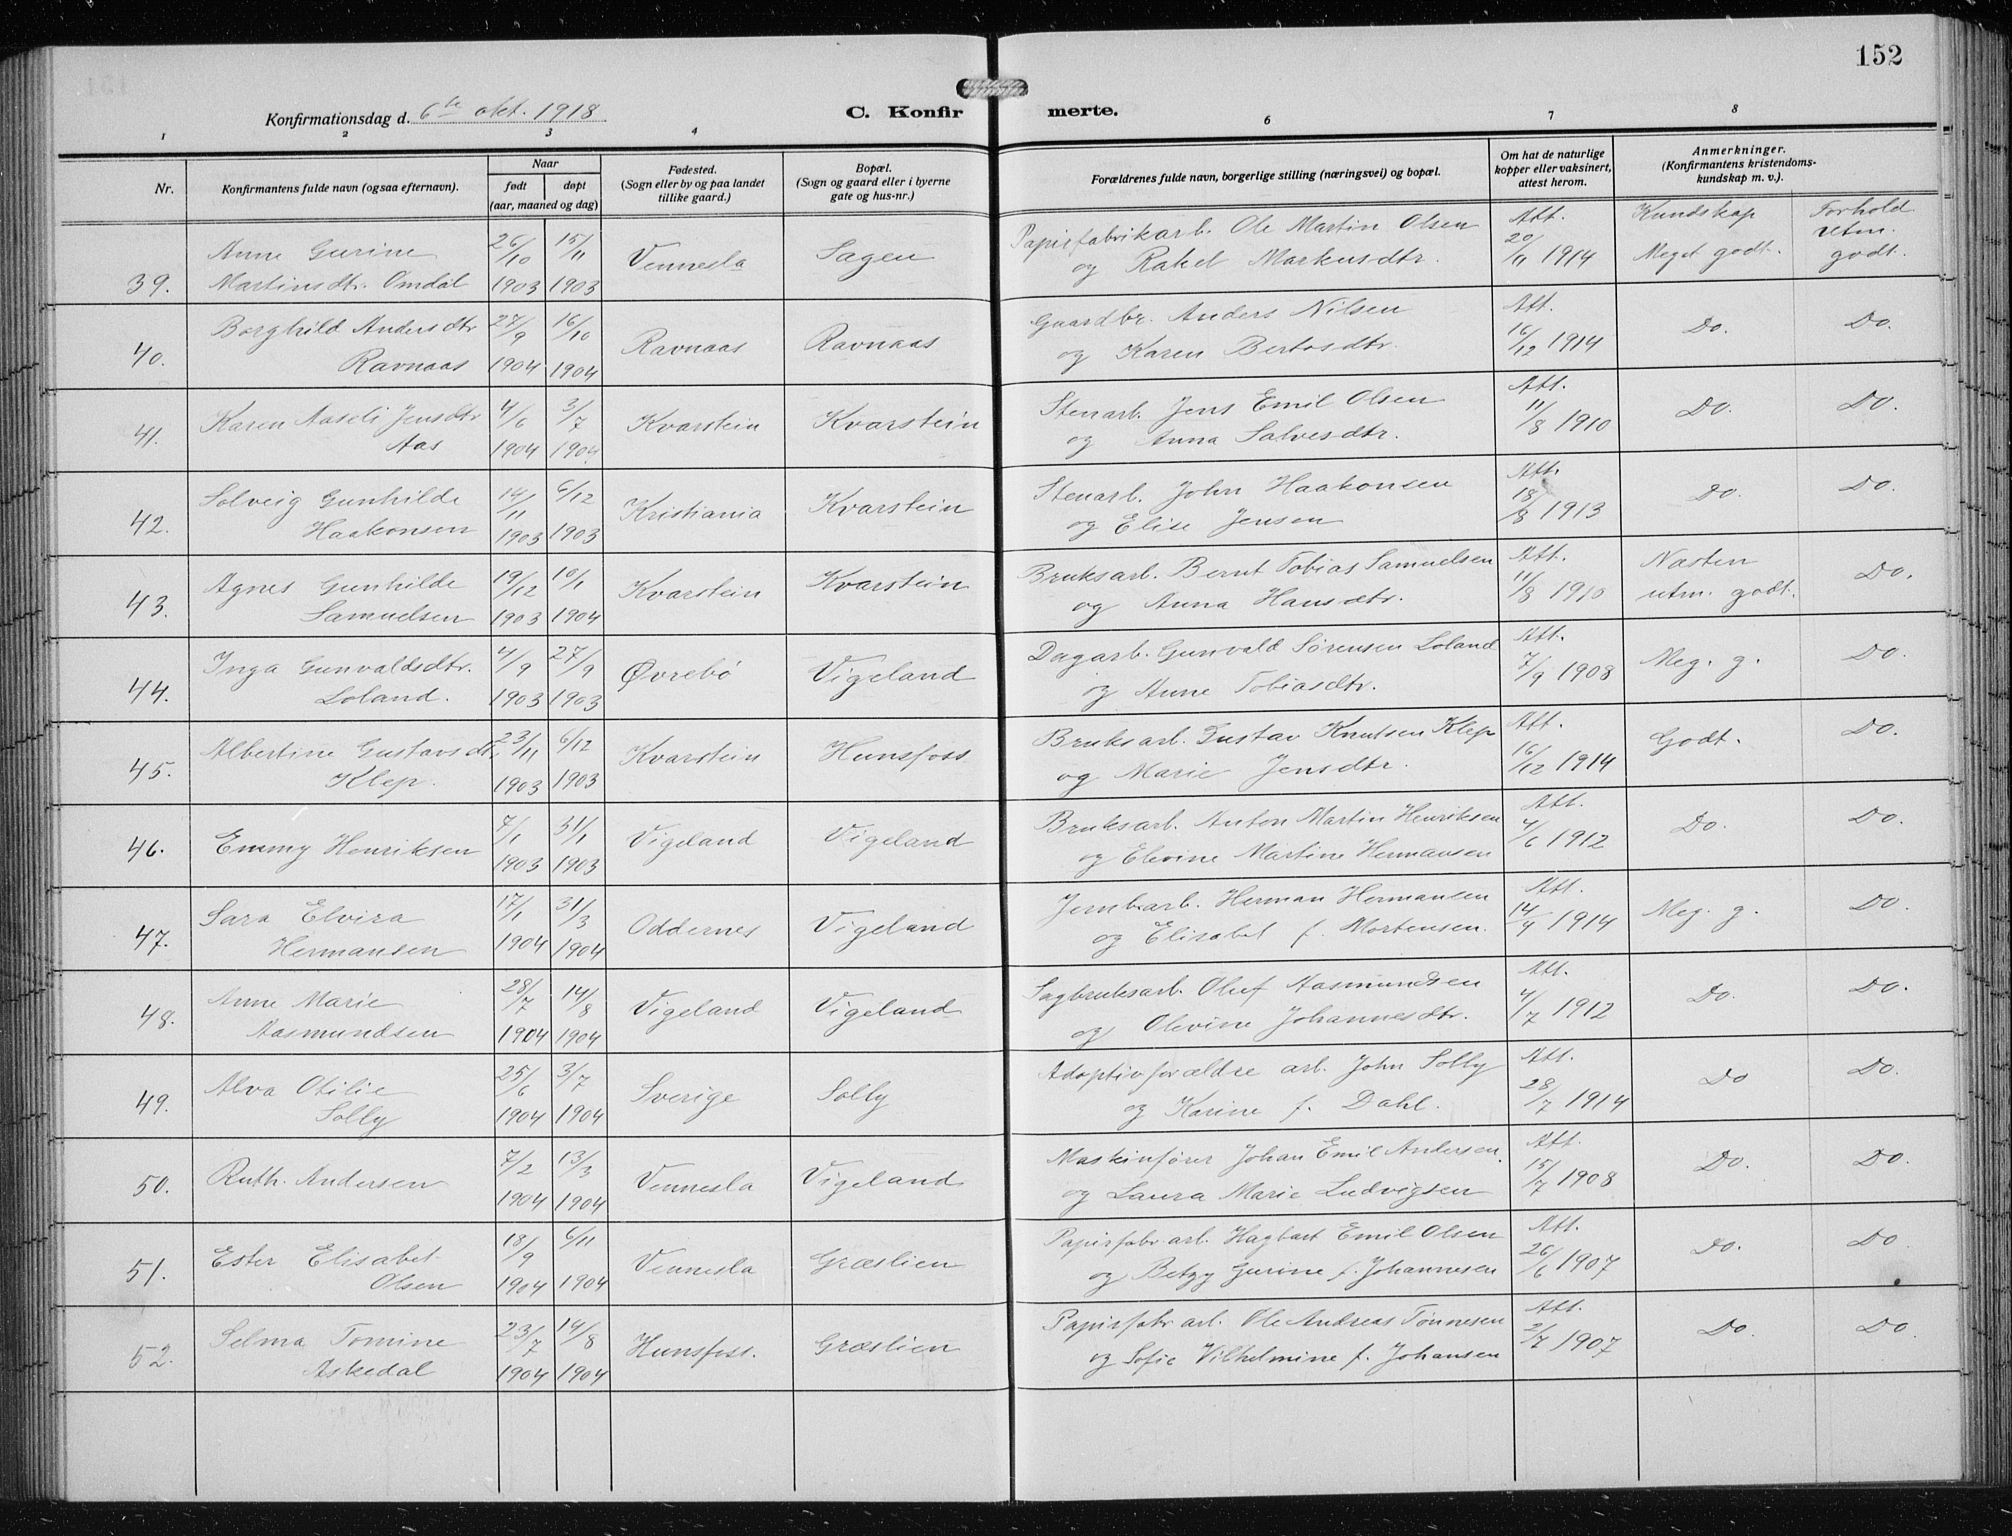 152
Konfirmationsdag d. 6te okt. 1918 C. Konfirmerte.
1 2 3 4 5 6 7 8
Nr. Konfirmantens fulde navn (ogsaa efternavn). Naar født døpt (aar, maaned og dag) Fødested. (Sogn eller by og paa landet tillike gaard.) Bopæl. (Sogn og gaard eller i byerne gate og hus-nr.) Forældrenes fulde navn, borgerlige stilling (næringsvei) og bopæl. Om hat de naturlige kopper eller vaksinert, attest herom. Anmerkninger. (Konfirmantens kristendoms-kundskap m. v.).
Kundskap Forhold
39. Anne Gurine Martinsdtr. Omdal 26/10 1903 15/11 1903 Vennesla Sagen Papirfabrikarb. Ole Martin Olsen og Rakel Markusdtr. Att. 20/11 1914 Meget godt. utm. godt.
40. Borghild Andersdtr Ravnaas 27/9 1904 16/10 1904 Ravnaas Ravnaas Gaardbr. Anders Nilsen og Karen Bertosdtr. Att. 16/12 1914 Do. Do.
41. Karen Aaseli Jensdtr Aas 4/6 1904 3/7 1904 Kvarstein Kvarstein Stenarb. Jens Emil Olsen og Anna Salvesdtr. Att. 11/8 1910 Do. Do.
42. Solveig Gunhilde Haakonsen 14/11 1903 6/12 1903 Kristiania Kvarstein Stenarb. John Haakonsen og Elise Jensen Att. 18/8 1913 Do. Do.
43. Agnes Gunhilde Samuelsen 19/12 1903 10/1 1904 Kvarstein Kvarstein Bruksarb. Bernt Tobias Samuelsen og Anna Hansdtr. Att. 11/8 1910 Næsten utm. godt. Do.
44. Inga Gunvaldsdtr. Loland. 4/9 1903 27/9 1903 Øvrebö Vigeland Dagarb. Gunvald Sørensen Loland og Anne Tobiasdtr. Att. 7/9 1908 Meg. g. Do.
45. Albertine Gustavsdtr. Klep. 23/11 1903 6/12 1903 Kvarstein Hunsfoss Bruksarb. Gustav Knutsen Klep og Marie Jensdtr. Att. 16/12 1914 Godt. Do.
46. Emmy Henriksen 7/1 1903 31/1 1903 Vigeland Vigeland Bruksarb. Anton Martin Henriksen og Elevine Martine Hermansen Att. 4/6 1912 Do. Do.
47. Sara Elvira Hermansen 17/1 1904 31/3 1904 Oddernes Vigeland Jernb.arb. Herman Hermansen og Elisabet f. Mortensen. Att. 14/9 1914 Meg. g. Do.
48. Anne Marie Aasmundsen 28/7 1904 14/8 1904 Vigeland Vigeland Sagbruksarb. Oluf Aasmundsen og Olevine Johannesdtr. Att. 4/7 1912 Do. Do.
49. Alva Otilie Solly 25/6 1904 3/7 1904 Sverige Solly Adoptivforældre arb. John Solly og Karine f. Dahl. Att. 28/7 1914 Do Do.
50. Ruth Andersen 7/2 1904 13/3 1904 Vennesla Vigeland Maskinfører Johan Emil Andersen. og Laura Marie Ludvigsen Att. 15/7 1908 Do. Do.
51. Ester Elisabet Olsen 18/9 1904 6/11 1904 Vennesla Græslien Papirfabr arb. Hagbart Emil Olsen og Betzy Gurine f. Johannesen Att. 26/6 1907 Do. Do
52. Selma Tomine Askedal 23/7 1904 14/8 1904 Hunsfoss. Græslien Papirfabr arb. Ole Andreas Tönnesen og Sofie Vilhelmine f. Johansen Att. 2/7 1907 Do. Do.